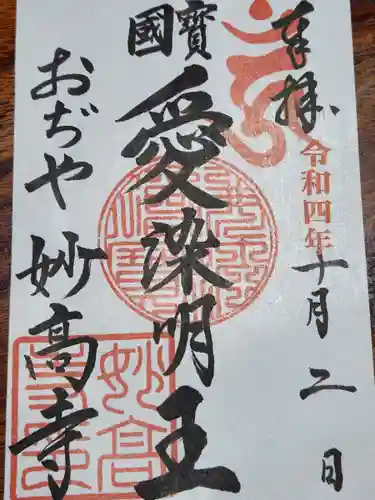 奉拝
令和四年十月二日
國寳
愛染明王
おぢや
妙高寺
妙高寺